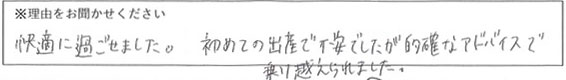 ※理由をお聞かせください
快適に過ごせました。 初めての出産で不安でしたが的確なアドバイスで
乗り越えられました。